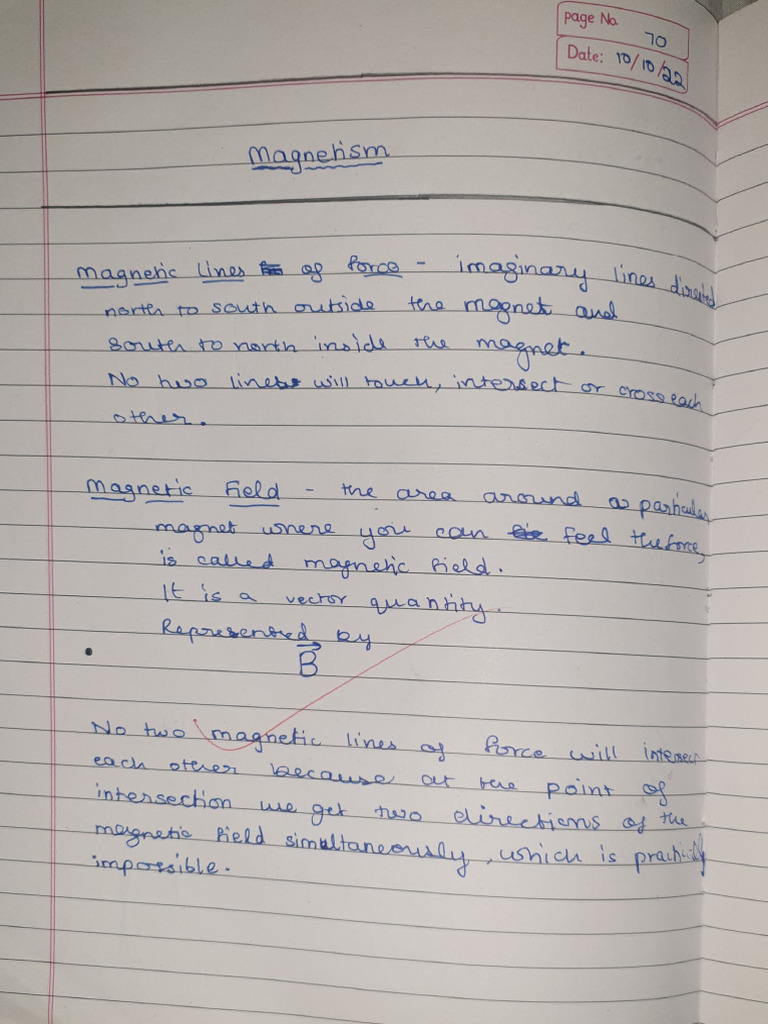 page No. 70
Date: 10/10/22
Magnetism
Magnetic lines of force - imaginary lines directed
north to south outside the magnet and
south to north inside the magnet.
No two lines will touch, intersect or cross each
other.
Magnetic Field - the area around a particular
magnet where you can feel the force,
is called magnetic field.
It is a vector quantity.
Represented by
B⃗
No two magnetic lines of force will intersect
each other because at the point of
intersection we get two directions of the
magnetic field simultaneously, which is practically
impossible.